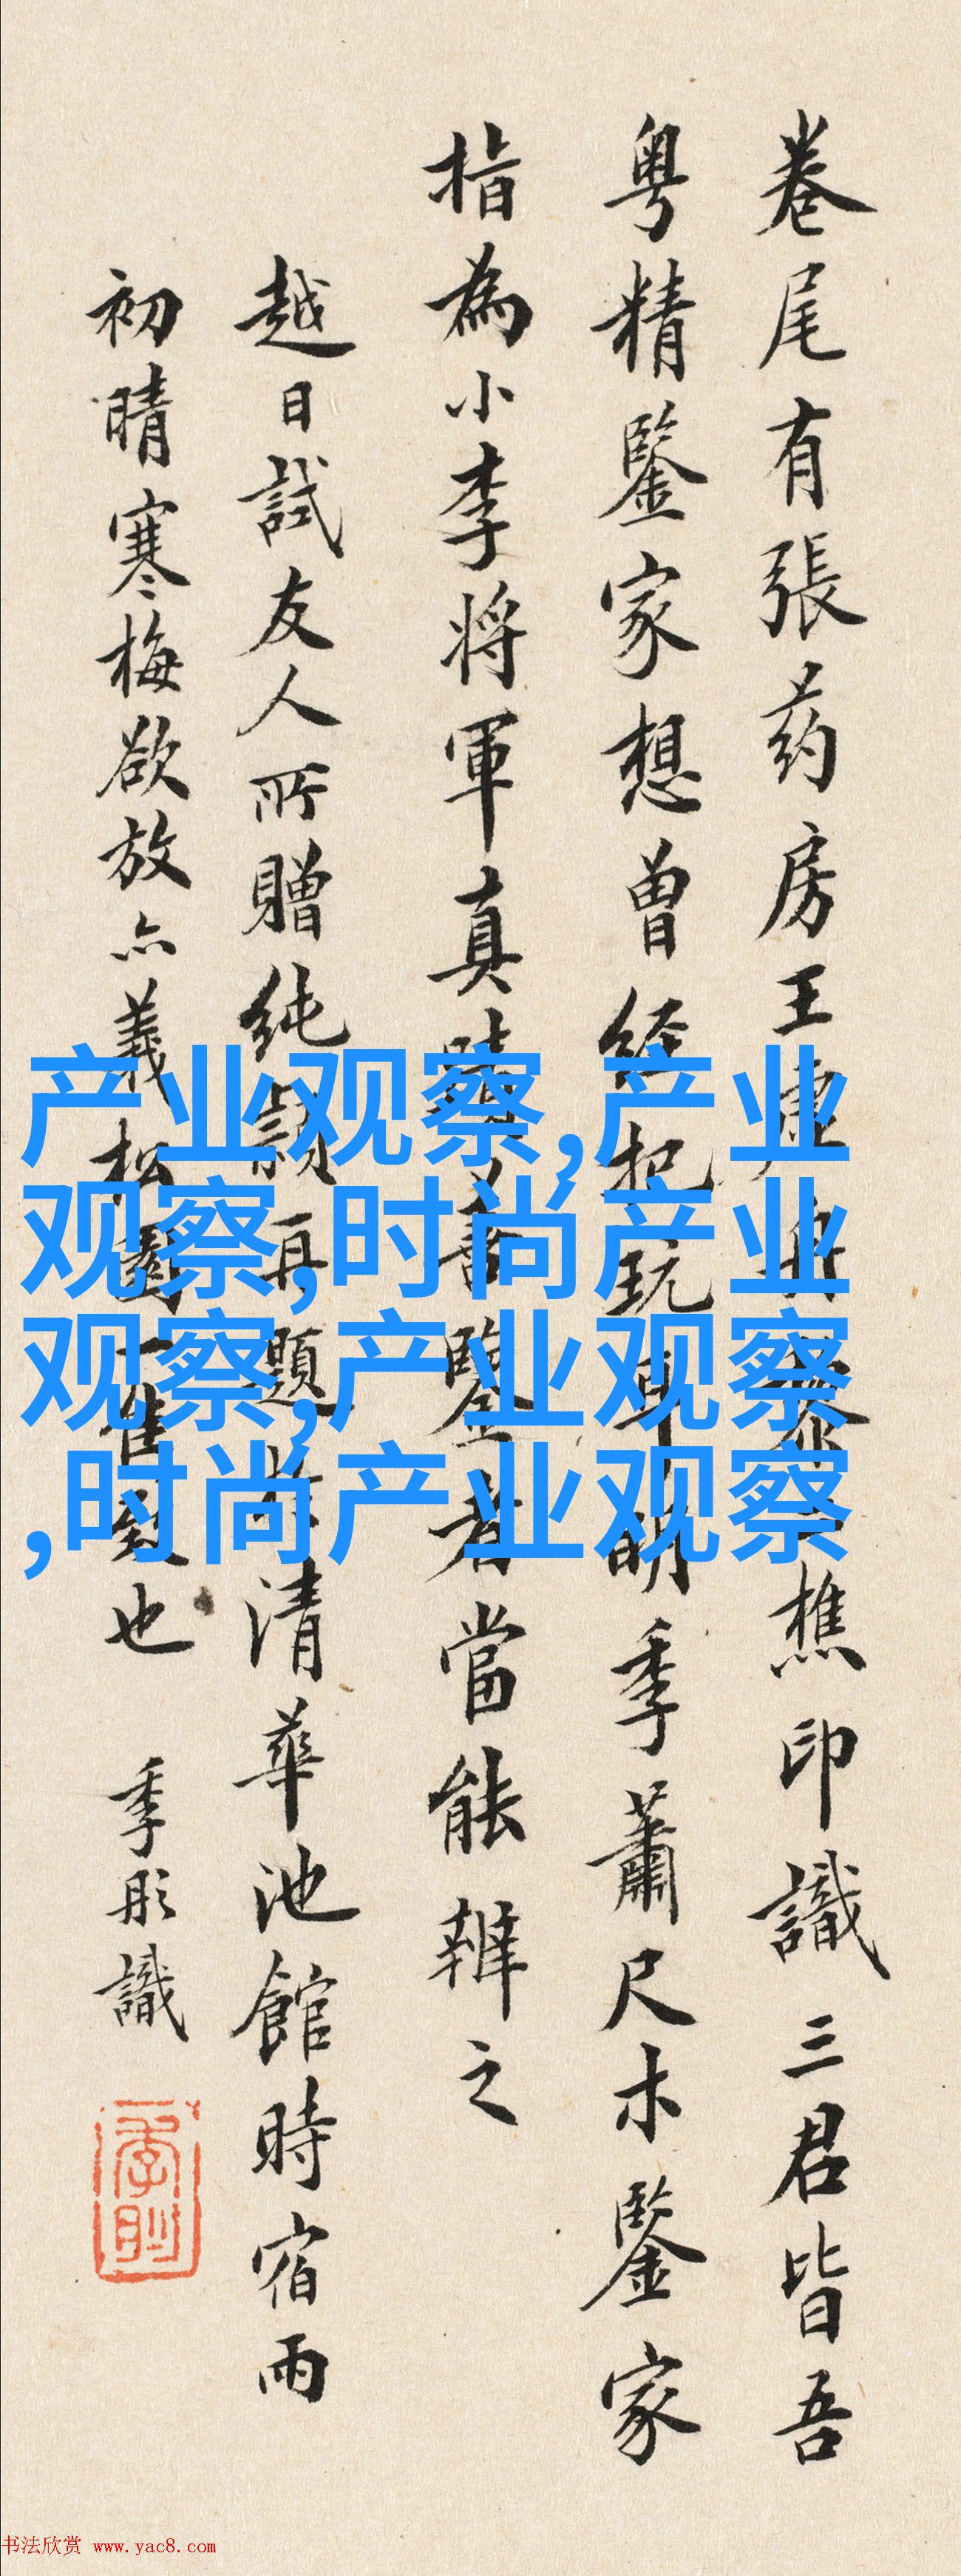 卷尾有張药房王虛舟黎二樵印識三君皆吾
粤精鑒家想曾經把玩耶明季蕭尺木鑒家
指為小李將軍真蹟善鑒者當能辨之
越日試友人所贈純穎再題清華池館時宿雨
初晴寒梅欲放亦義松園一佳致也 季彤識
产业观察,产业
观察,时尚产业
观察,产业观察
,时尚产业观察
书法欣赏 www.yac8.com